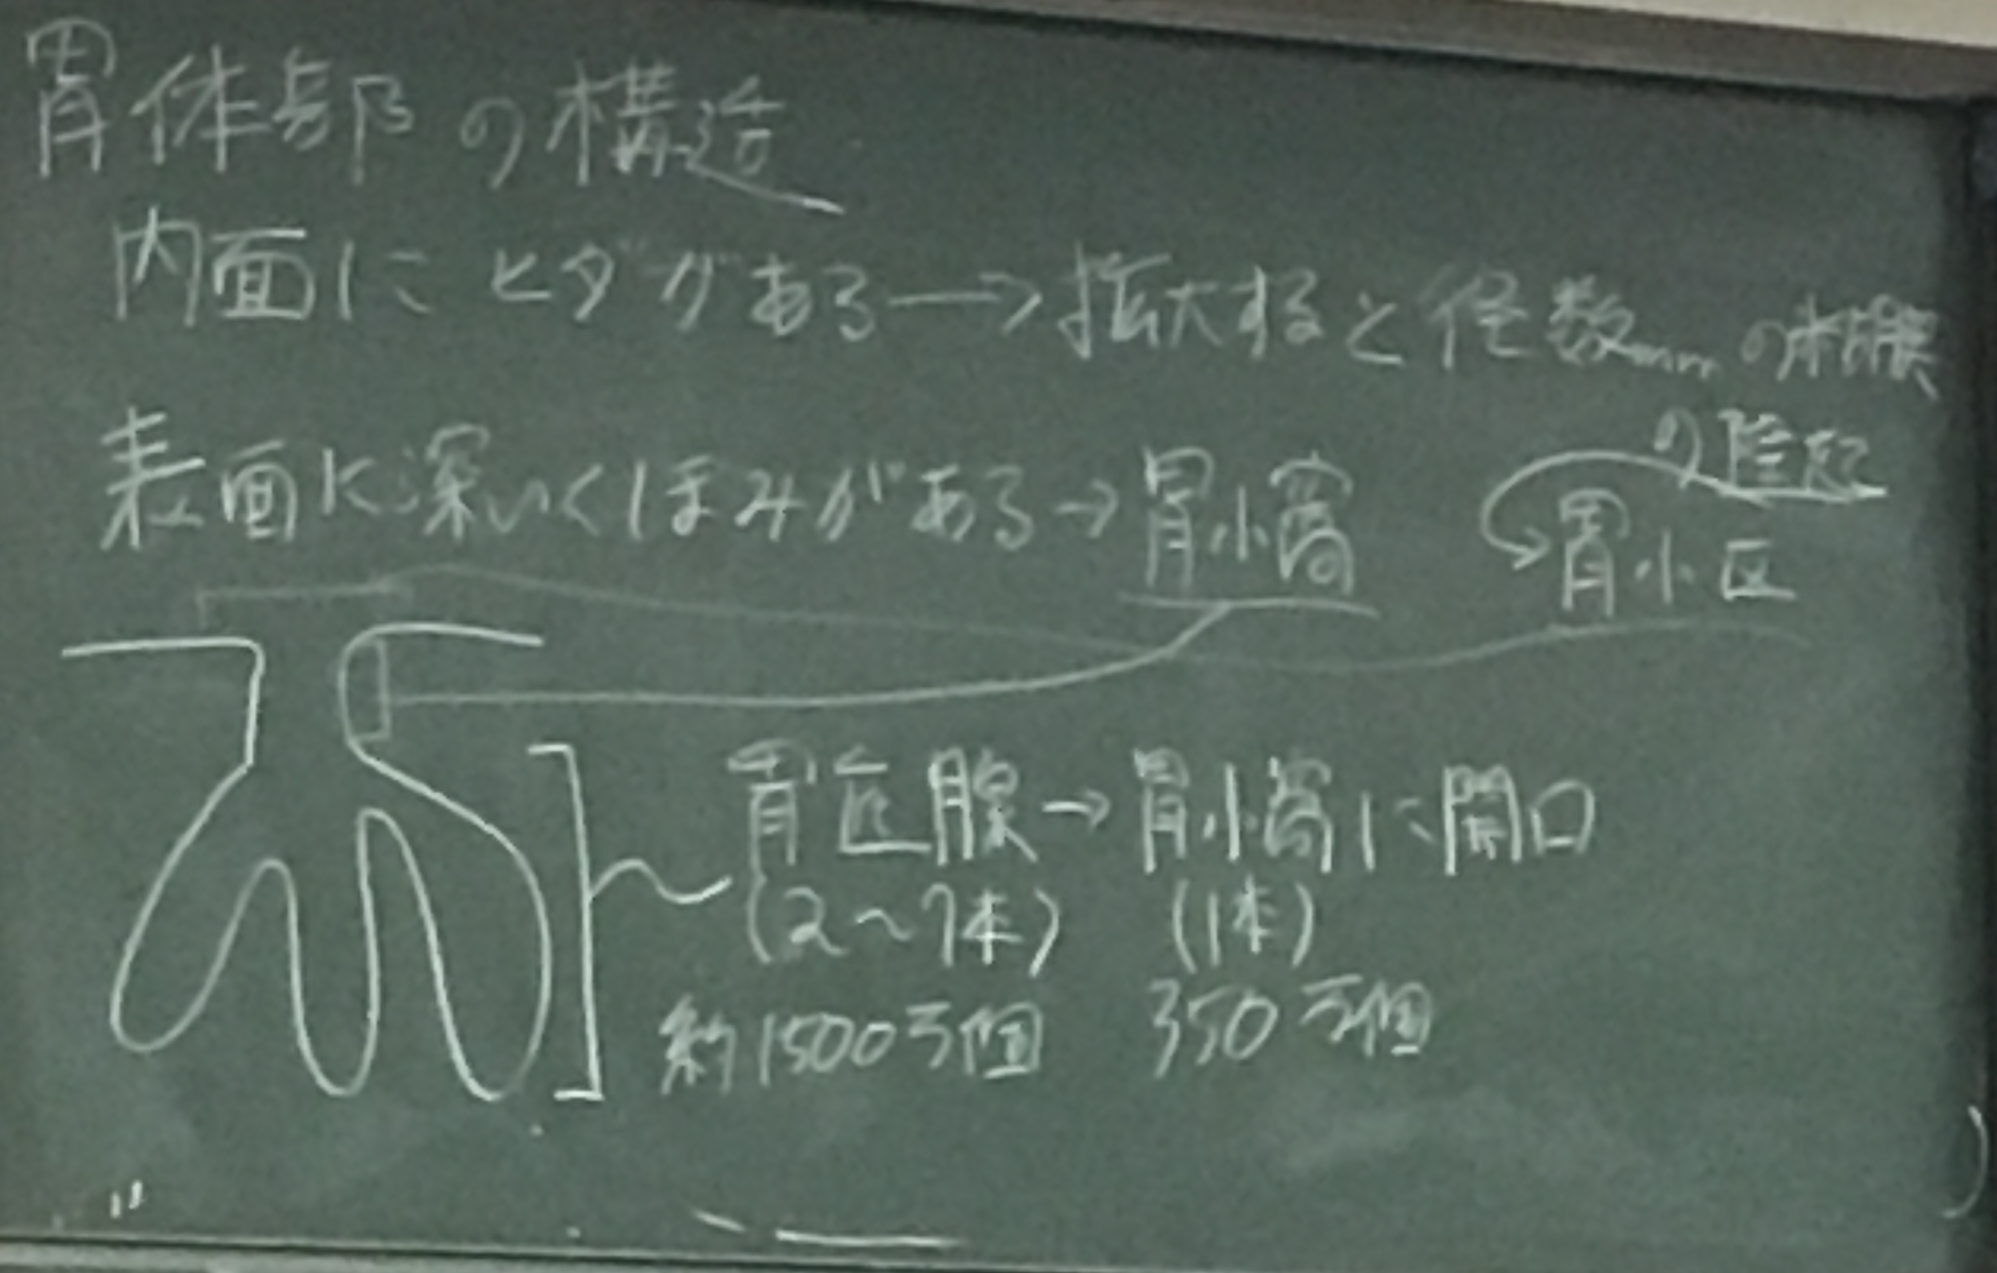 胃体部の構造
内面にヒダがある→拡大すると径数mmの粘膜
の隆起
表面に深いくぼみがある→胃小窩
胃小区
胃底腺→胃小窩に開口
(2~7本) (1本)
約1500万個 350万個